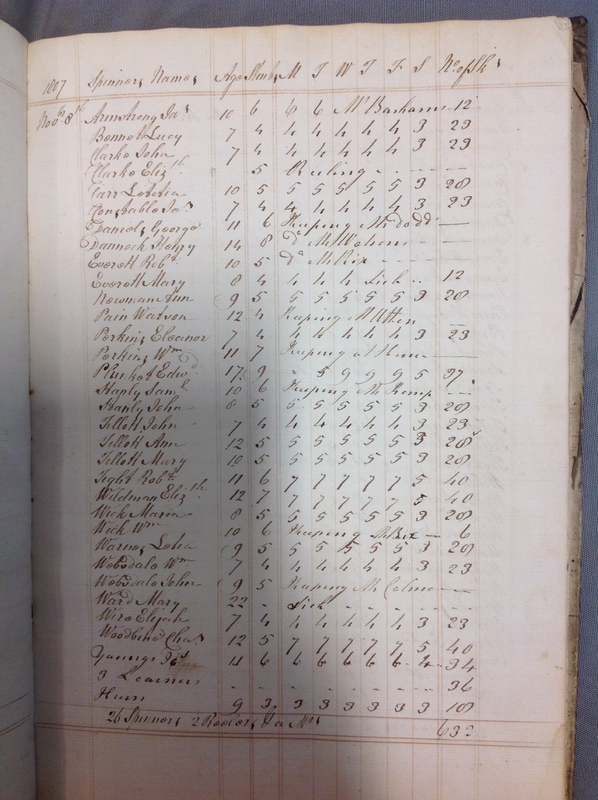 1807 Spinners Names Age Stint M T W T F S No of Sks
Novr 8th Armstrong Jas 10 6 6 6 Mr Barhams 12
Bennett Lucy 7 4 4 4 4 4 4 3 23
Clarke John 7 4 4 4 4 4 4 3 23
Clarke Elizth 5 Reeling - - - - -
Carr Letitia 10 5 5 5 5 5 5 3 28
Constable Jas 7 4 4 4 4 4 4 3 23
Daniels George 11 6 Keeping Mr Dodd —
Dannock Henry 14 8 Do Mr Watson - —
Everett Robt 10 5 Do Mr Rix - - - -
Everett Mary 8 4 4 4 4 Sick - - 12
Newman Ann 9 5 5 5 5 5 5 3 28
Pain Watson 12 4 Keeping —
Perkins Eleanor 7 4 4 4 4 4 4 3 23
Perkins Wm 11 7 Keeping at Home — —
Plunket Edwd 17 9 - 5 9 9 9 5 37
Staply Saml 10 6 Keeping Mr Kemp —
Staply John 8 5 5 5 5 5 5 3 28
Tillott John 7 4 4 4 4 4 4 3 23
Tillott Ann 12 5 5 5 5 5 5 3 28
Tillott Mary 10 5 5 5 5 5 5 3 28
Tight Robt 11 6 7 7 7 7 7 5 40
Wildman Elizth 12 7 7 7 7 7 7 5 40
Wick Maria 8 5 5 5 5 5 5 3 28
Wick Wm 10 6 Keeping Mr Rix — 6
Warnes Letia 9 5 5 5 5 5 5 3 28
Websdale Wm 7 4 4 4 4 4 4 3 23
Websdale John 9 5 Keeping Mr —
Ward Mary 22 - Sick - - - - -
Wire Elijah 7 4 4 4 4 4 4 3 23
Woodbine Chas 12 5 7 7 7 7 7 5 40
Youngs Jas 11 6 6 6 6 6 6 4 34
3 Learners - - - - - - - - 36
Hurn 9 3 3 3 3 3 3 3 18
26 Spinners 2 Reelers 632